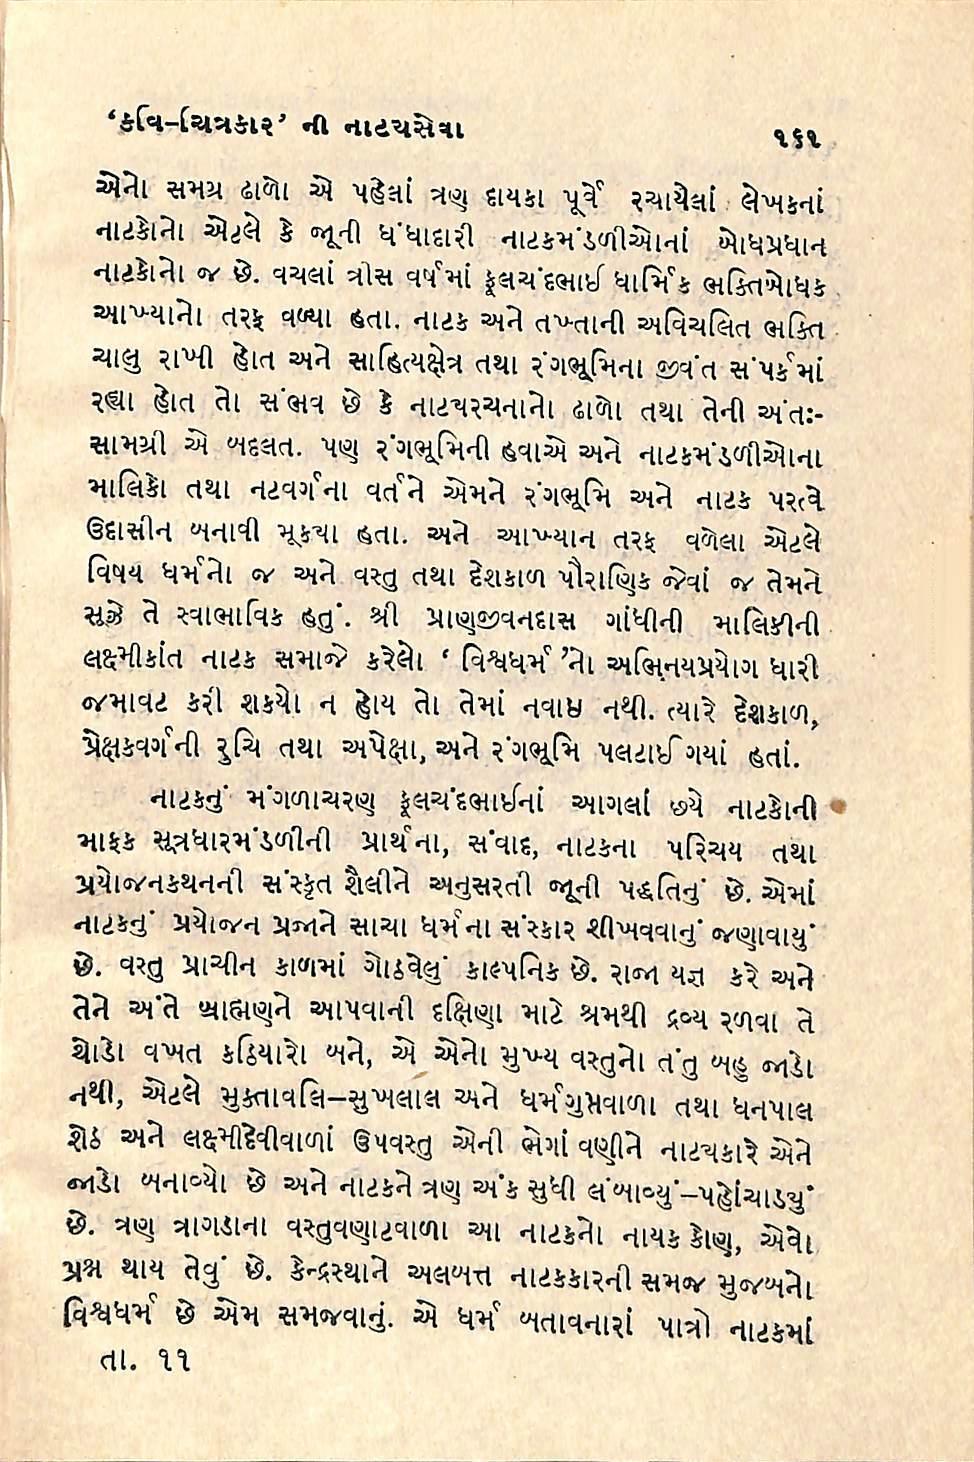 ‘કવિ–ચિત્રકાર’ ની નાટ્યસેવા ૧૬૧
એનો સમગ્ર ઢાળો એ પહેલાં ત્રણ દાયકા પૂર્વે રચાયેલાં લેખકનાં
નાટકોનો એટલે કે જૂની ધંધાદારી નાટકમંડળીઓનાં બોધપ્રધાન
નાટકોનો જ છે. વચલાં ત્રીસ વર્ષમાં ફૂલચંદભાઈ ધાર્મિક ભક્તિબોધક
આખ્યાનો તરફ વળ્યા હતા. નાટક અને તખ્તાની અવિચલિત ભક્તિ
ચાલુ રાખી હોત અને સાહિત્યક્ષેત્ર તથા રંગભૂમિના જીવંત સંપર્કમાં
રહ્યા હોત તો સંભવ છે કે નાટ્યરચનાનો ઢાળો તથા તેની અંતઃ-
સામગ્રી એ બદલત. પણ રંગભૂમિની હવાએ અને નાટકમંડળીઓના
માલિકો તથા નટવર્ગના વર્તને એમને રંગભૂમિ અને નાટક પરત્વે
ઉદાસીન બનાવી મૂક્યા હતા. અને આખ્યાન તરફ વળેલા એટલે
વિષય ધર્મનો જ અને વસ્તુ તથા દેશકાળ પૌરાણિક જેવાં જ તેમને
સૂઝે તે સ્વાભાવિક હતું. શ્રી પ્રાણજીવનદાસ ગાંધીની માલિકીની
લક્ષ્મીકાંત નાટક સમાજે કરેલો ‘ વિશ્વધર્મ ’નો અભિનયપ્રયોગ ધારી
જમાવટ કરી શક્યો ન હોય તો તેમાં નવાઈ નથી. ત્યારે દેશકાળ,
પ્રેક્ષકવર્ગની રુચિ તથા અપેક્ષા, અને રંગભૂમિ પલટાઈ ગયાં હતાં.
નાટકનું મંગળાચરણ ફૂલચંદભાઈનાં આગલાં છયે નાટકોની
માફક સૂત્રધારમંડળીની પ્રાર્થના, સંવાદ, નાટકના પરિચય તથા
પ્રયોજનકથનની સંસ્કૃત શૈલીને અનુસરતી જૂની પદ્ધતિનું છે. એમાં
નાટકનું પ્રયોજન પ્રજાને સાચા ધર્મના સંસ્કાર શીખવવાનું જણાવાયું
છે. વસ્તુ પ્રાચીન કાળમાં ગોઠવેલું કાલ્પનિક છે. રાજા યજ્ઞ કરે અને
તેને અંતે બ્રાહ્મણને આપવાની દક્ષિણા માટે શ્રમથી દ્રવ્ય રળવા તે
થોડો વખત કઠિયારો બને, એ એનો મુખ્ય વસ્તુનો તંતુ બહુ જાડો
નથી, એટલે મુક્તાવલિ–સુખલાલ અને ધર્મગુપ્તવાળા તથા ધનપાલ
શેઠ અને લક્ષ્મીદેવીવાળાં ઉપવસ્તુ એની ભેગાં વણીને નાટ્યકારે એને
જાડો બનાવ્યો છે અને નાટકને ત્રણ અંક સુધી લંબાવ્યું–પહોંચાડ્યું
છે. ત્રણ ત્રાગડાના વસ્તુવણાટવાળા આ નાટકનો નાયક કોણ, એવો
પ્રશ્ન થાય તેવું છે. કેન્દ્રસ્થાને અલબત્ત નાટકકારની સમજ મુજબનો
વિશ્વધર્મ છે એમ સમજવાનું. એ ધર્મ બતાવનારાં પાત્રો નાટકમાં
તા. ૧૧